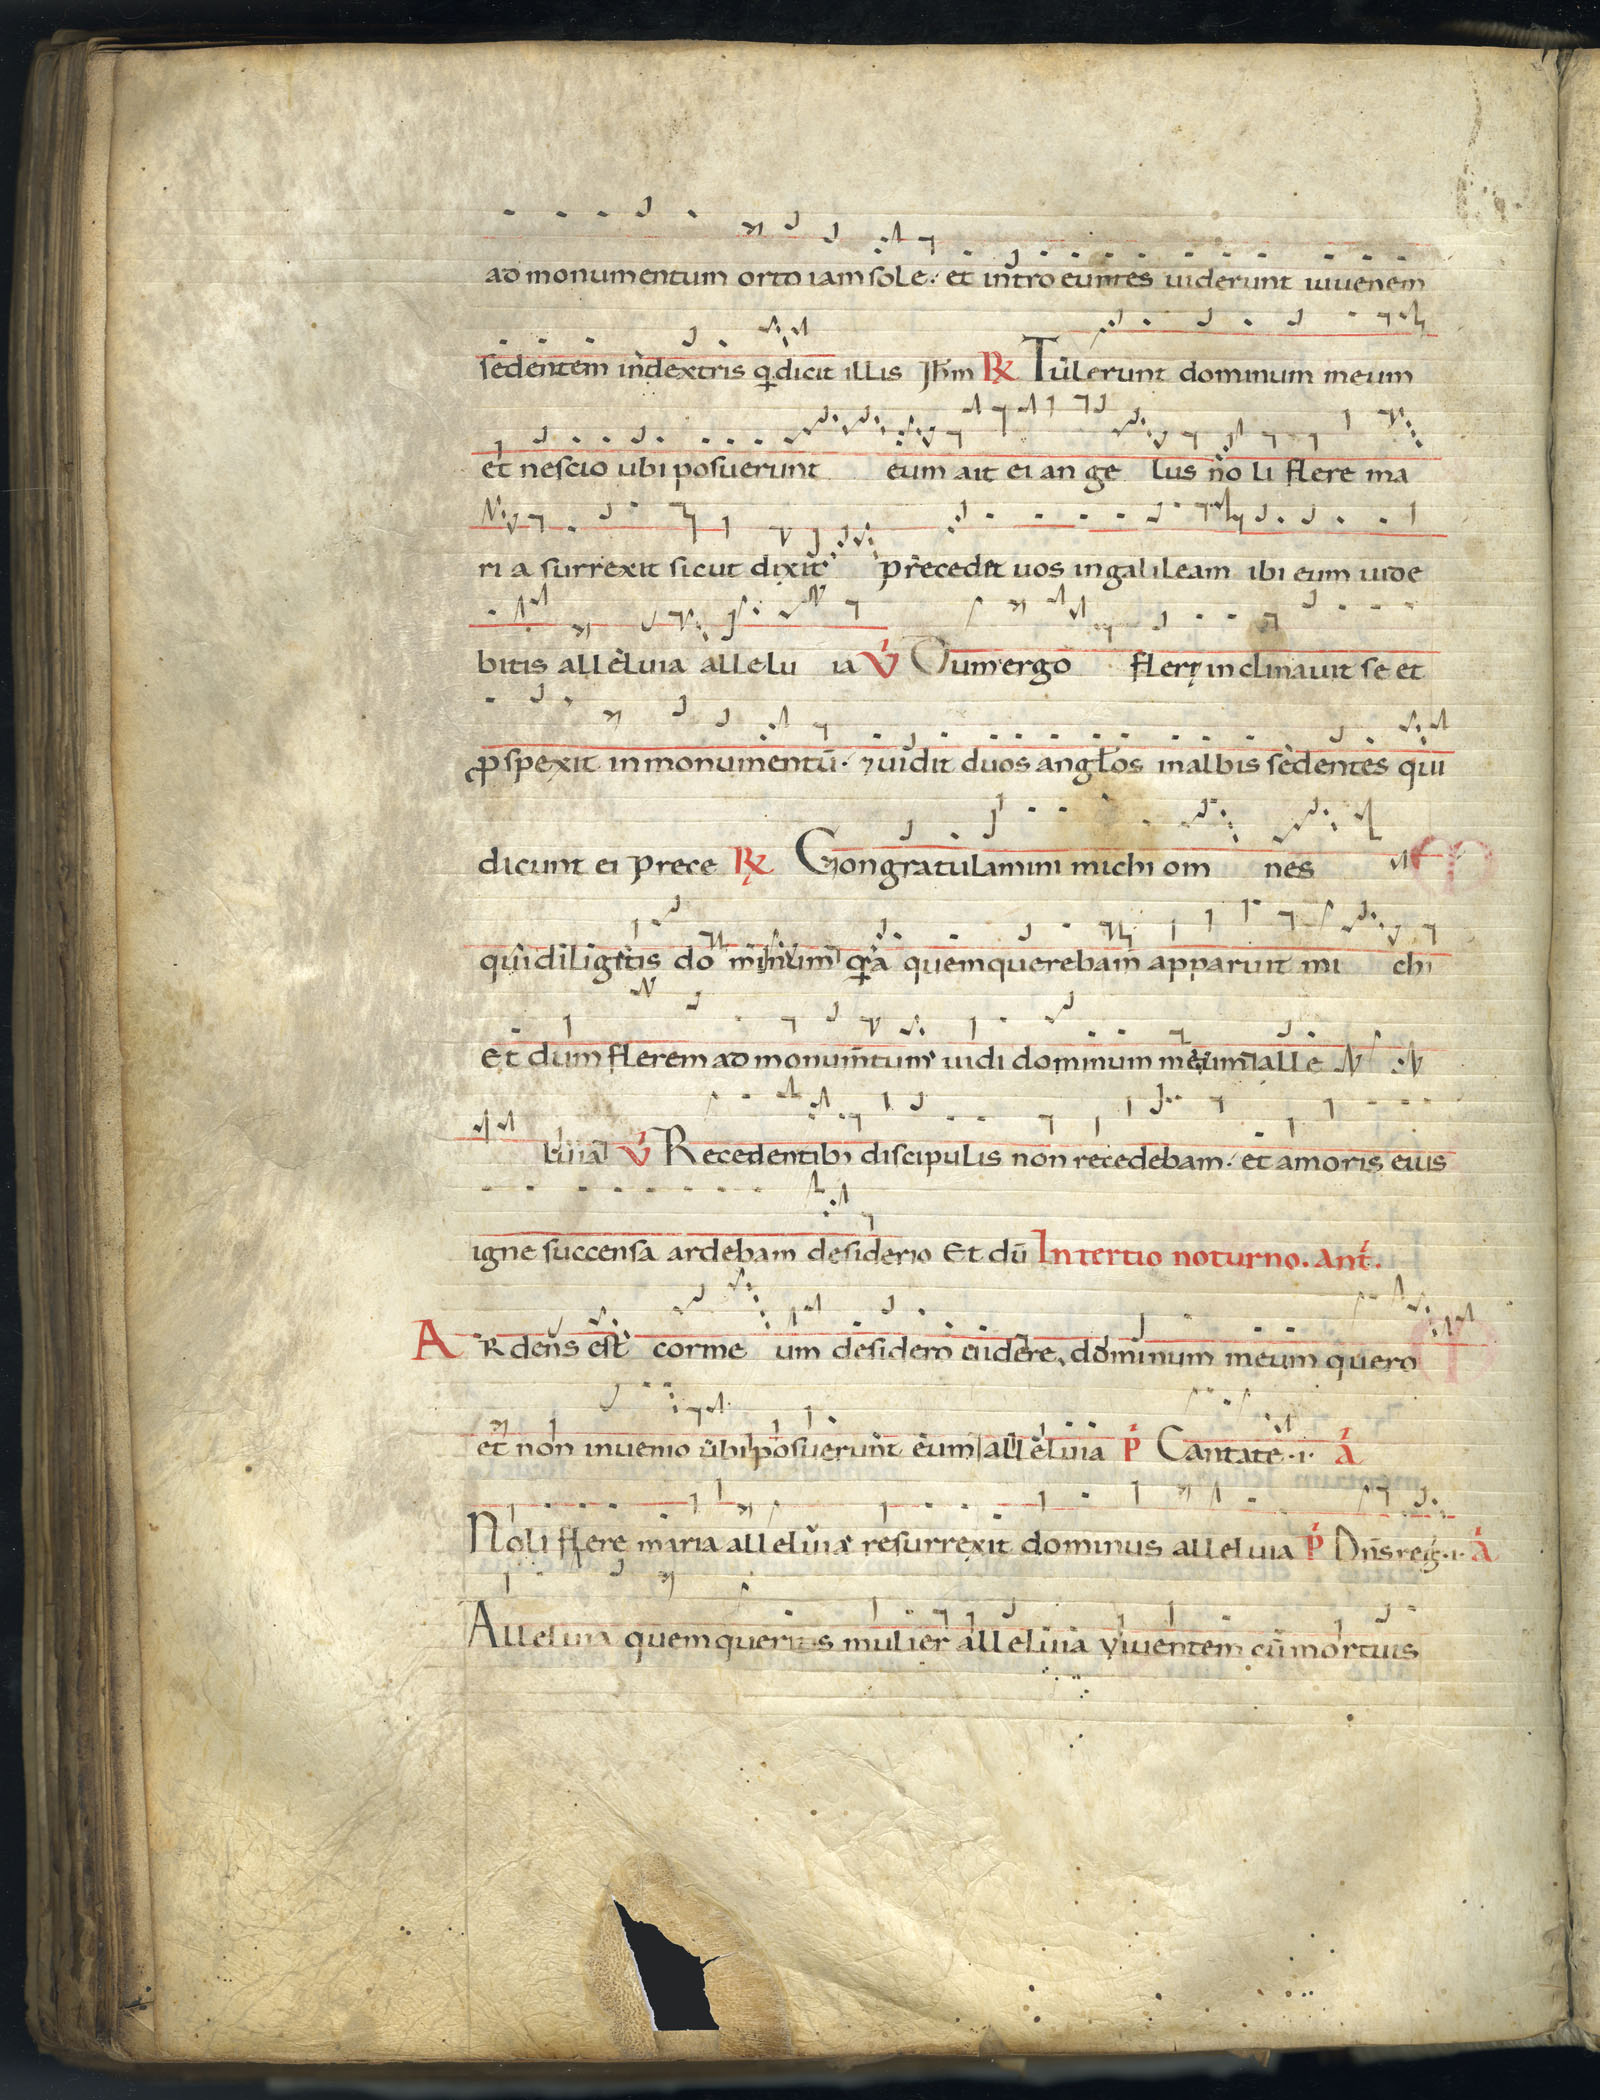 ad monumentum orto iam sole. et introeuntes uiderunt iuuenem
sedentem indextris q dicit illis Jhm R Tulerunt dominum meum
et nescio ubi posuerunt eum ait ei an ge lus no li flere ma
ri a surrexit sicut dixit precedet uos ingalileam ibi eum uide
bitis alleluia allelu ia V Cum ergo fler& inclinauit se et
pspexit inmonumentū. 7 uidit duos anglos inalbis sedentes qui
dicunt ei prece R Congratulamini michi om nes
qui diligitis do minum qa quem querebam apparuit mi chi
et dum flerem ad monumtum uidi dominum meum alle
luia V Recedentibꝰ discipulis non recedebam. et amoris eius
igne succensa ardebam desiderio Et dū In tertio noturno. ant.
A Rdens est cor me um desidero uidere dominum meum quero
et non inuenio ubi posuerunt eum alleluia P Cantate .i. A
Noli flere maria alleluia resurrexit dominus alleluia P Dns reg .i. A
Alleluia quem queris mulier alleluia viuentem cū mortuis